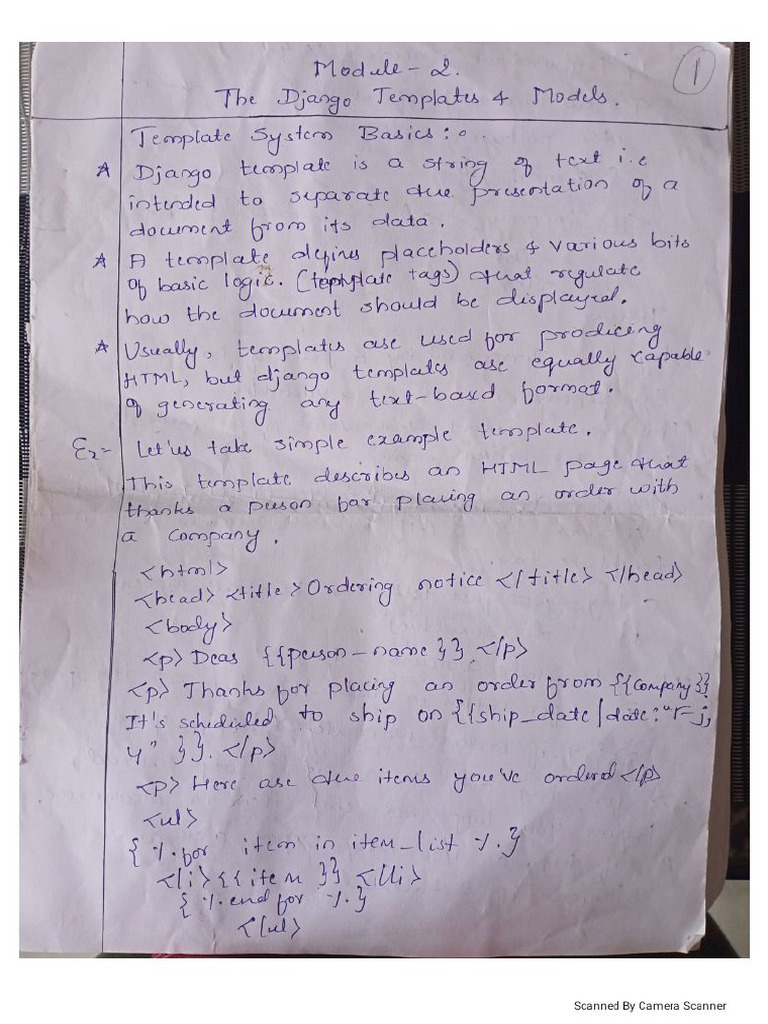 Module - 2.
1
The Django Templates & Models.
Template System Basics :-
* Django template is a string of text i.e
intended to separate the presentation of a
document from its data.
* A template defines placeholders & various bits
of basic logic. (template tags) that regulate
how the document should be displayed.
* Usually, templates are used for producing
HTML, but django templates are equally capable
of generating any text-based format.
Ex:- Let us take simple example template.
This template describes an HTML page that
thanks a person for placing an order with
a company.
<html>
<head> <title> Ordering notice </title> </head>
<body>
<p> Dear {{person_name}}, </p>
<p> Thanks for placing an order from {{company}}.
It's scheduled to ship on {{ship_date | date: "F j,
Y" }}. </p>
<p> Here are the items you've ordered </p>
<ul>
{ % for item in item_list % }
<li> {{item }} </li>
{ % end for % }
</ul>
Scanned By Camera Scanner